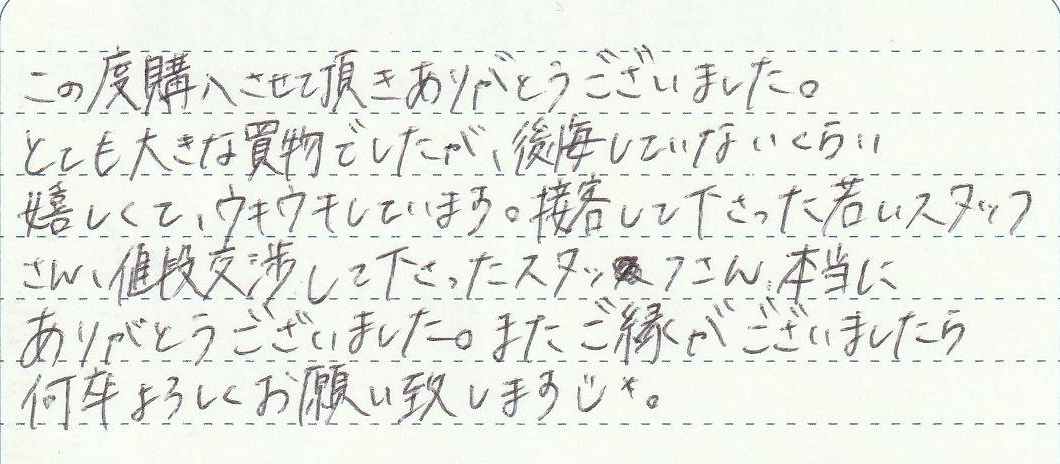 この度購入させて頂きありがとうございました。
とても大きな買物でしたが、後悔していないくらい
嬉しくて、ウキウキしています。接客して下さった若いスタッフ
さん、値段交渉して下さったスタッフさん、本当に
ありがとうございました。またご縁がございましたら
何卒よろしくお願い致します。